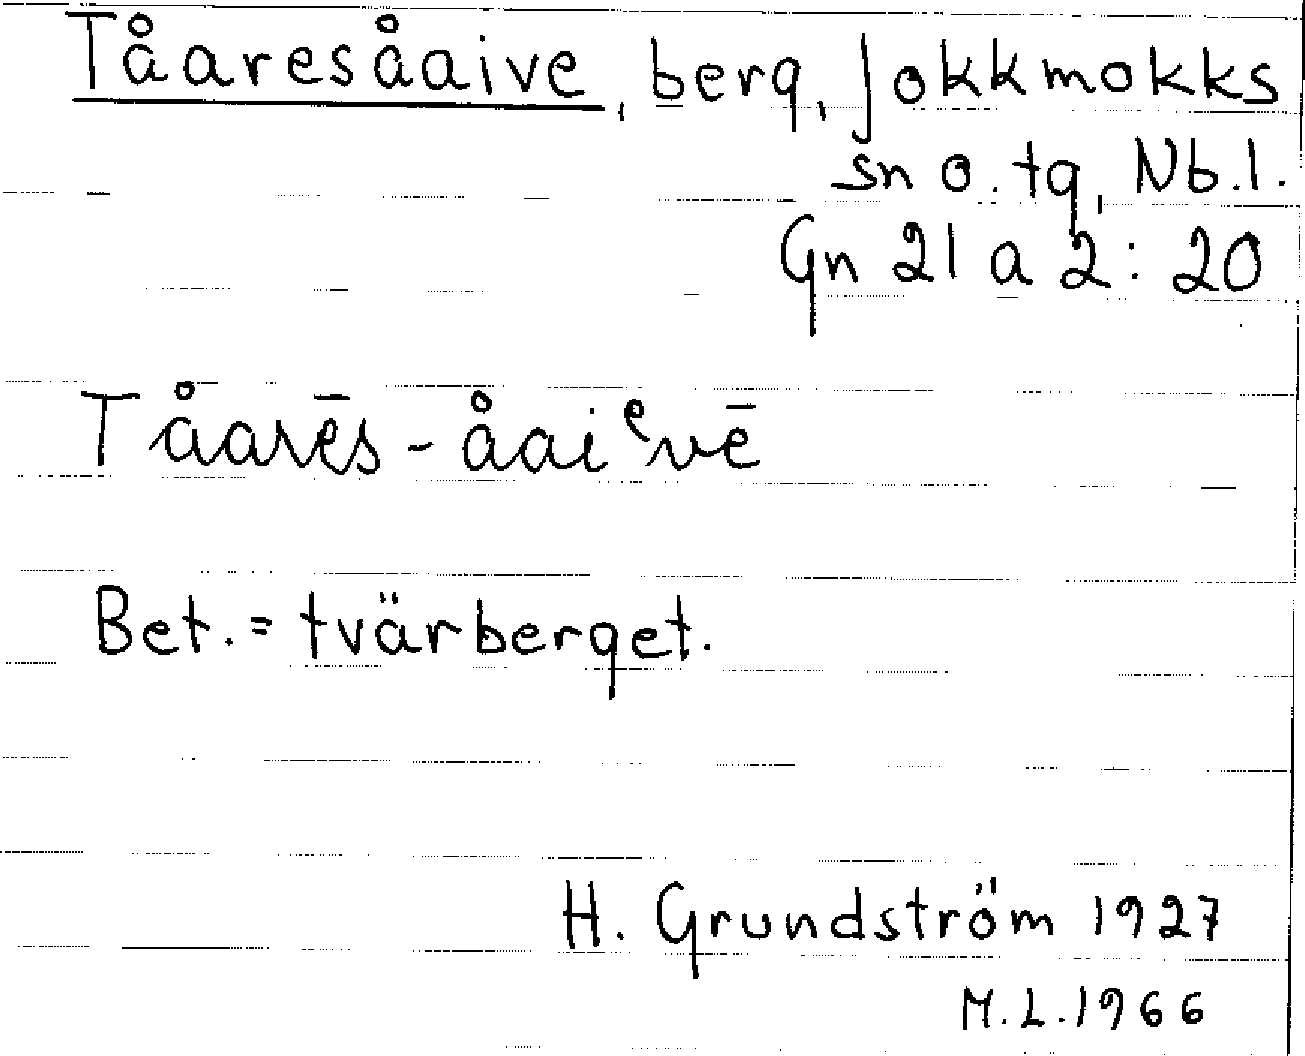 Tåaresåaive, berg, Jokkmokks
sn o. tg, Nb.l.
Gn 21 a 2:20
Tåarēs-åaiᵉvē
Bet. = tvärberget.
H. Grundström 1927
M.L. 1966